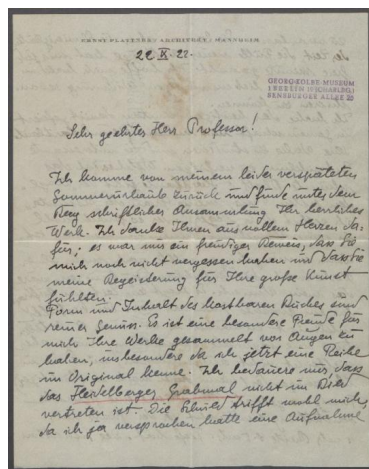 ERNST PLATTNER / ARCHITEKT / MANNHEIM
22 IX. 22.
GEORG-KOLBE-MUSEUM
1 BERLIN 19 (CHARLBG.)
SENSBURGER ALLEE 25
Sehr geehrter Herr Professor!
Ich komme von meinem leider verspäteten
Sommerurlaub zurück und finde unter dem
Berg schriftlicher Ansammlung Ihr herrliches
Werk. Ich danke Ihnen aus vollem Herzen da-
für; es war mir ein freudiger Beweis, dass Sie
mich noch nicht vergessen haben und dass Sie
meine Begeisterung für Ihre große Kunst
fühlten.
Form und Inhalt des kostbaren Buches sind
reiner Genuss. Es ist eine besondere Freude für
mich Ihre Werke gesammelt vor Augen zu
haben, insbesondere da ich jetzt eine Reihe
im Original kenne. Ich bedaure nur, dass
das Heidelberger Grabmal nicht im Bild
vertreten ist. Die Schuld trifft wohl mich,
da ich ja versprochen hatte eine Aufnahme